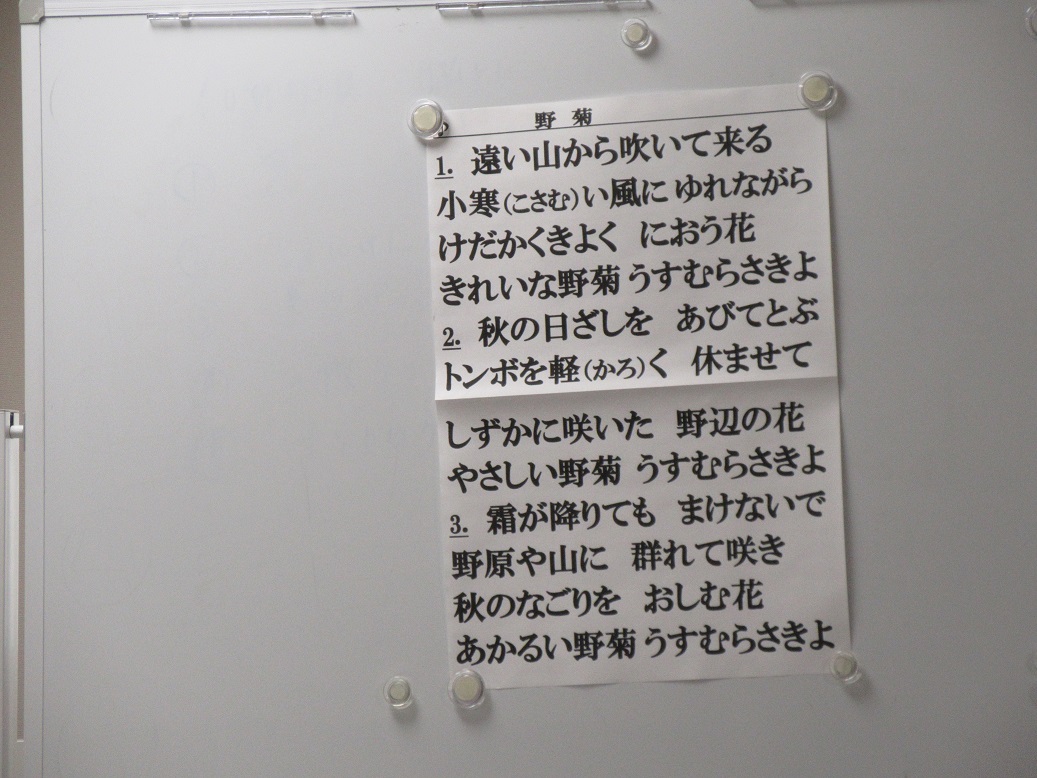 野菊
1. 遠い山から吹いて来る
小寒(こさむ)い風に ゆれながら
けだかくきよく におう花
きれいな野菊 うすむらさきよ
2. 秋の日ざしを あびてとぶ
トンボを軽(かろ)く 休ませて
しずかに咲いた 野辺の花
やさしい野菊 うすむらさきよ
3. 霜が降りても まけないで
野原や山に 群れて咲き
秋のなごりを おしむ花
あかるい野菊 うすむらさきよ